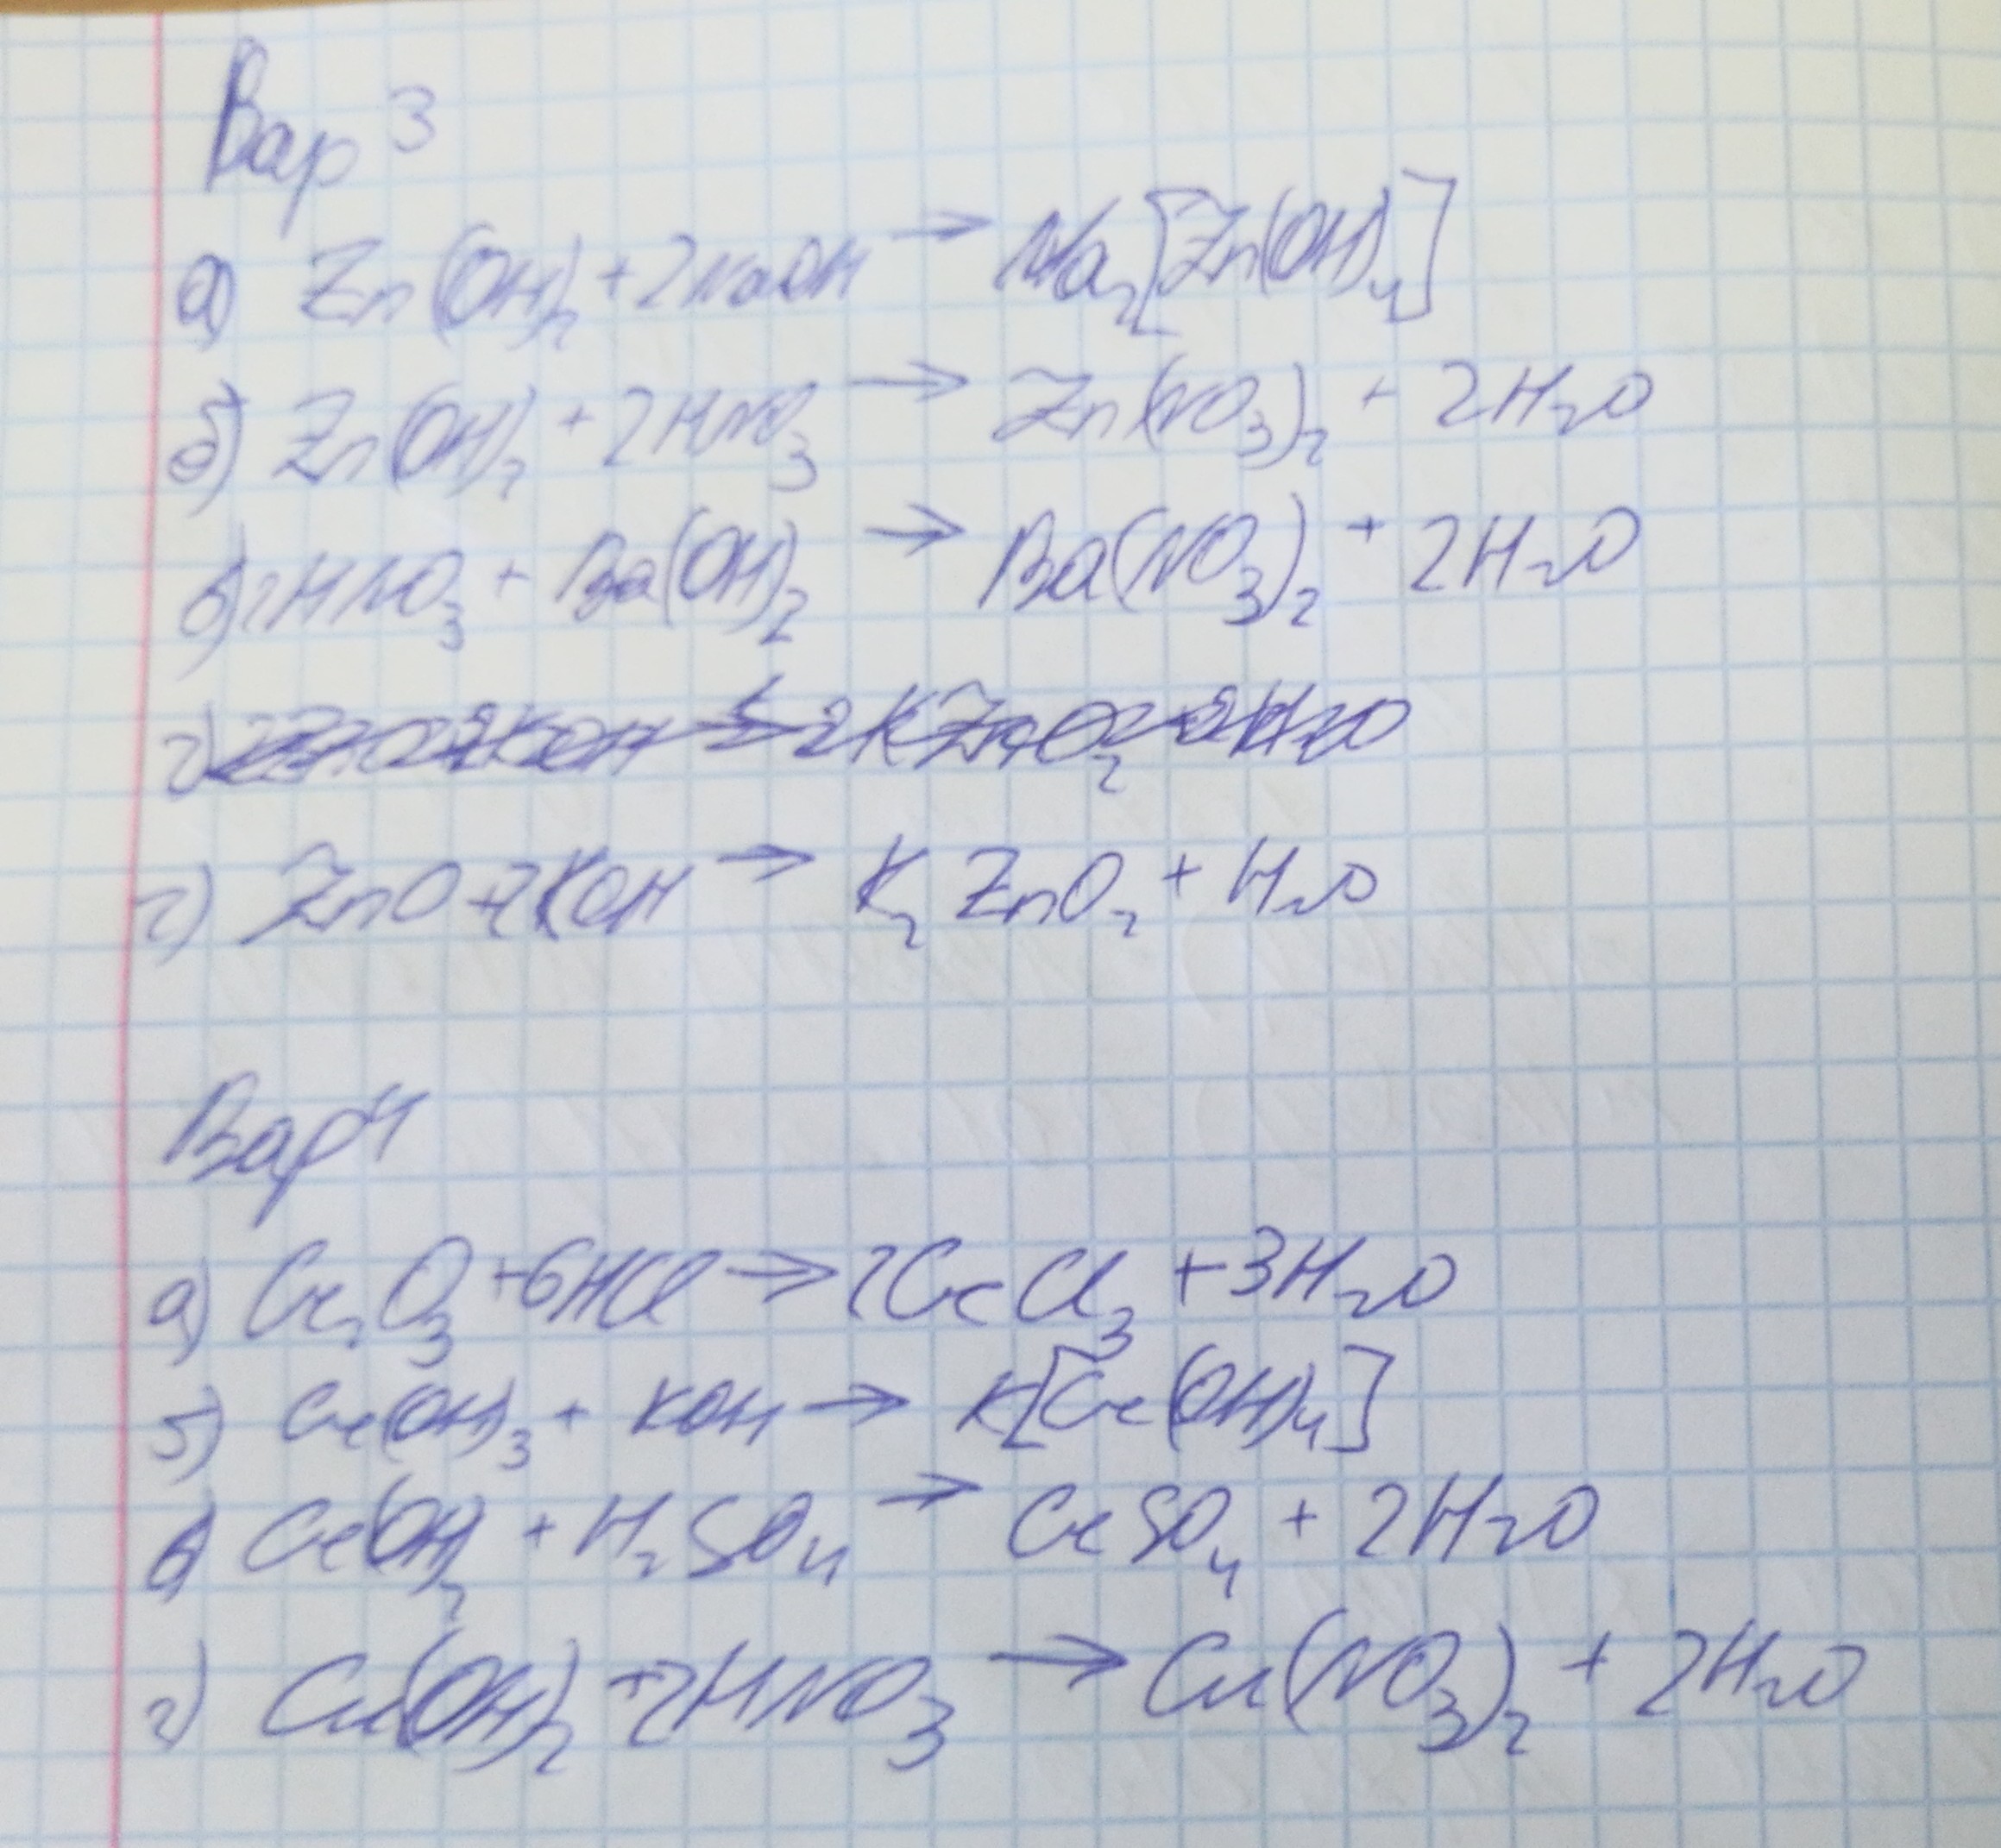 Вар 3
а) Zn(OH)₂ + 2NaOH → Na₂[Zn(OH)₄]
б) Zn(OH)₂ + 2HNO₃ → Zn(NO₃)₂ + 2H₂O
в) 2HNO₃ + Ba(OH)₂ → Ba(NO₃)₂ + 2H₂O
г)
г) ZnO + 2KOH → K₂ZnO₂ + H₂O
Вар 4
а) Cr₂O₃ + 6HCl → 2CrCl₃ + 3H₂O
б) Cr(OH)₃ + KOH → K[Cr(OH)₄]
в) Cr(OH)₂ + H₂SO₄ → CrSO₄ + 2H₂O
г) Cu(OH)₂ + 2HNO₃ → Cu(NO₃)₂ + 2H₂O